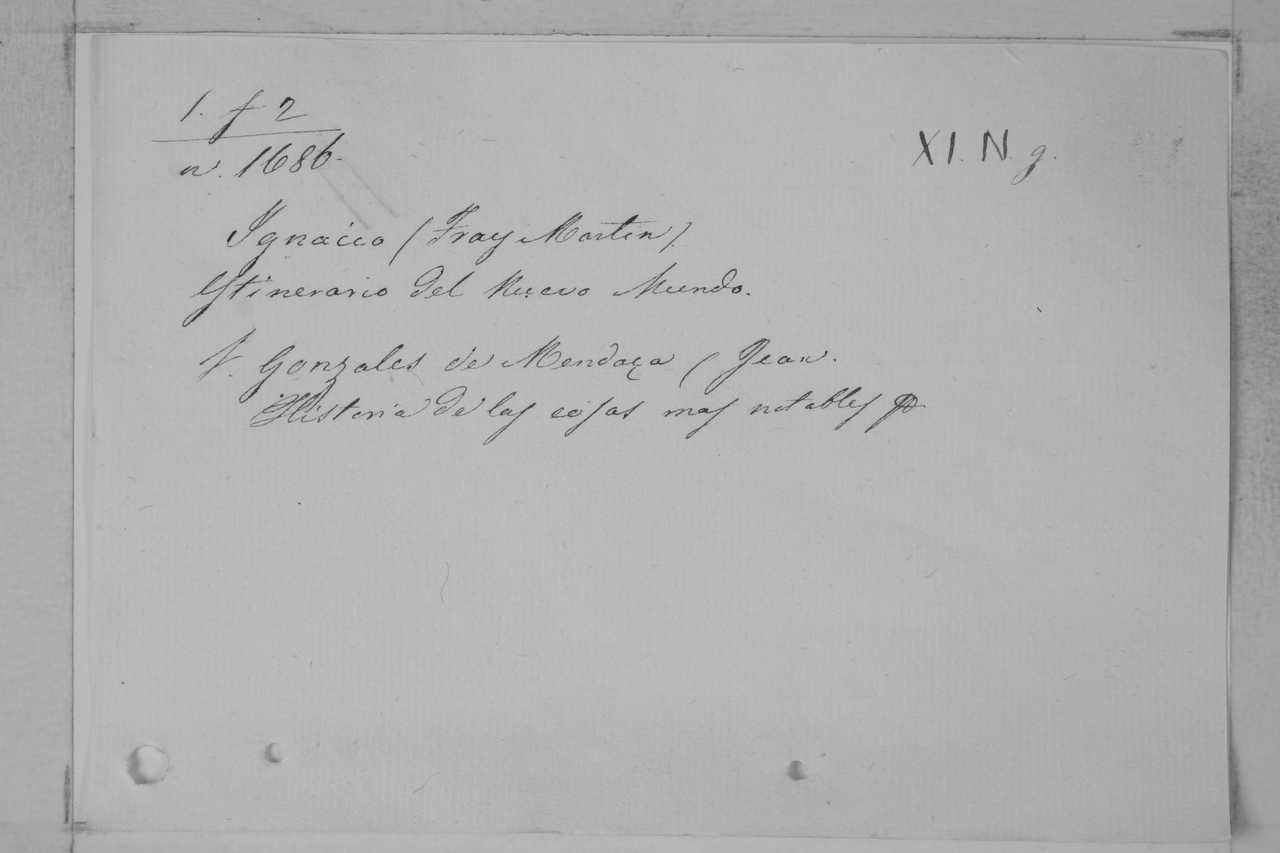 1. f 2
n. 1686.
XI. N. g.
Ignacio (Fray Martin).
Itinerario del Nuevo Mundo.
V. Gonzales de Mendoça (Jean.
Historia de las cosas mas notables